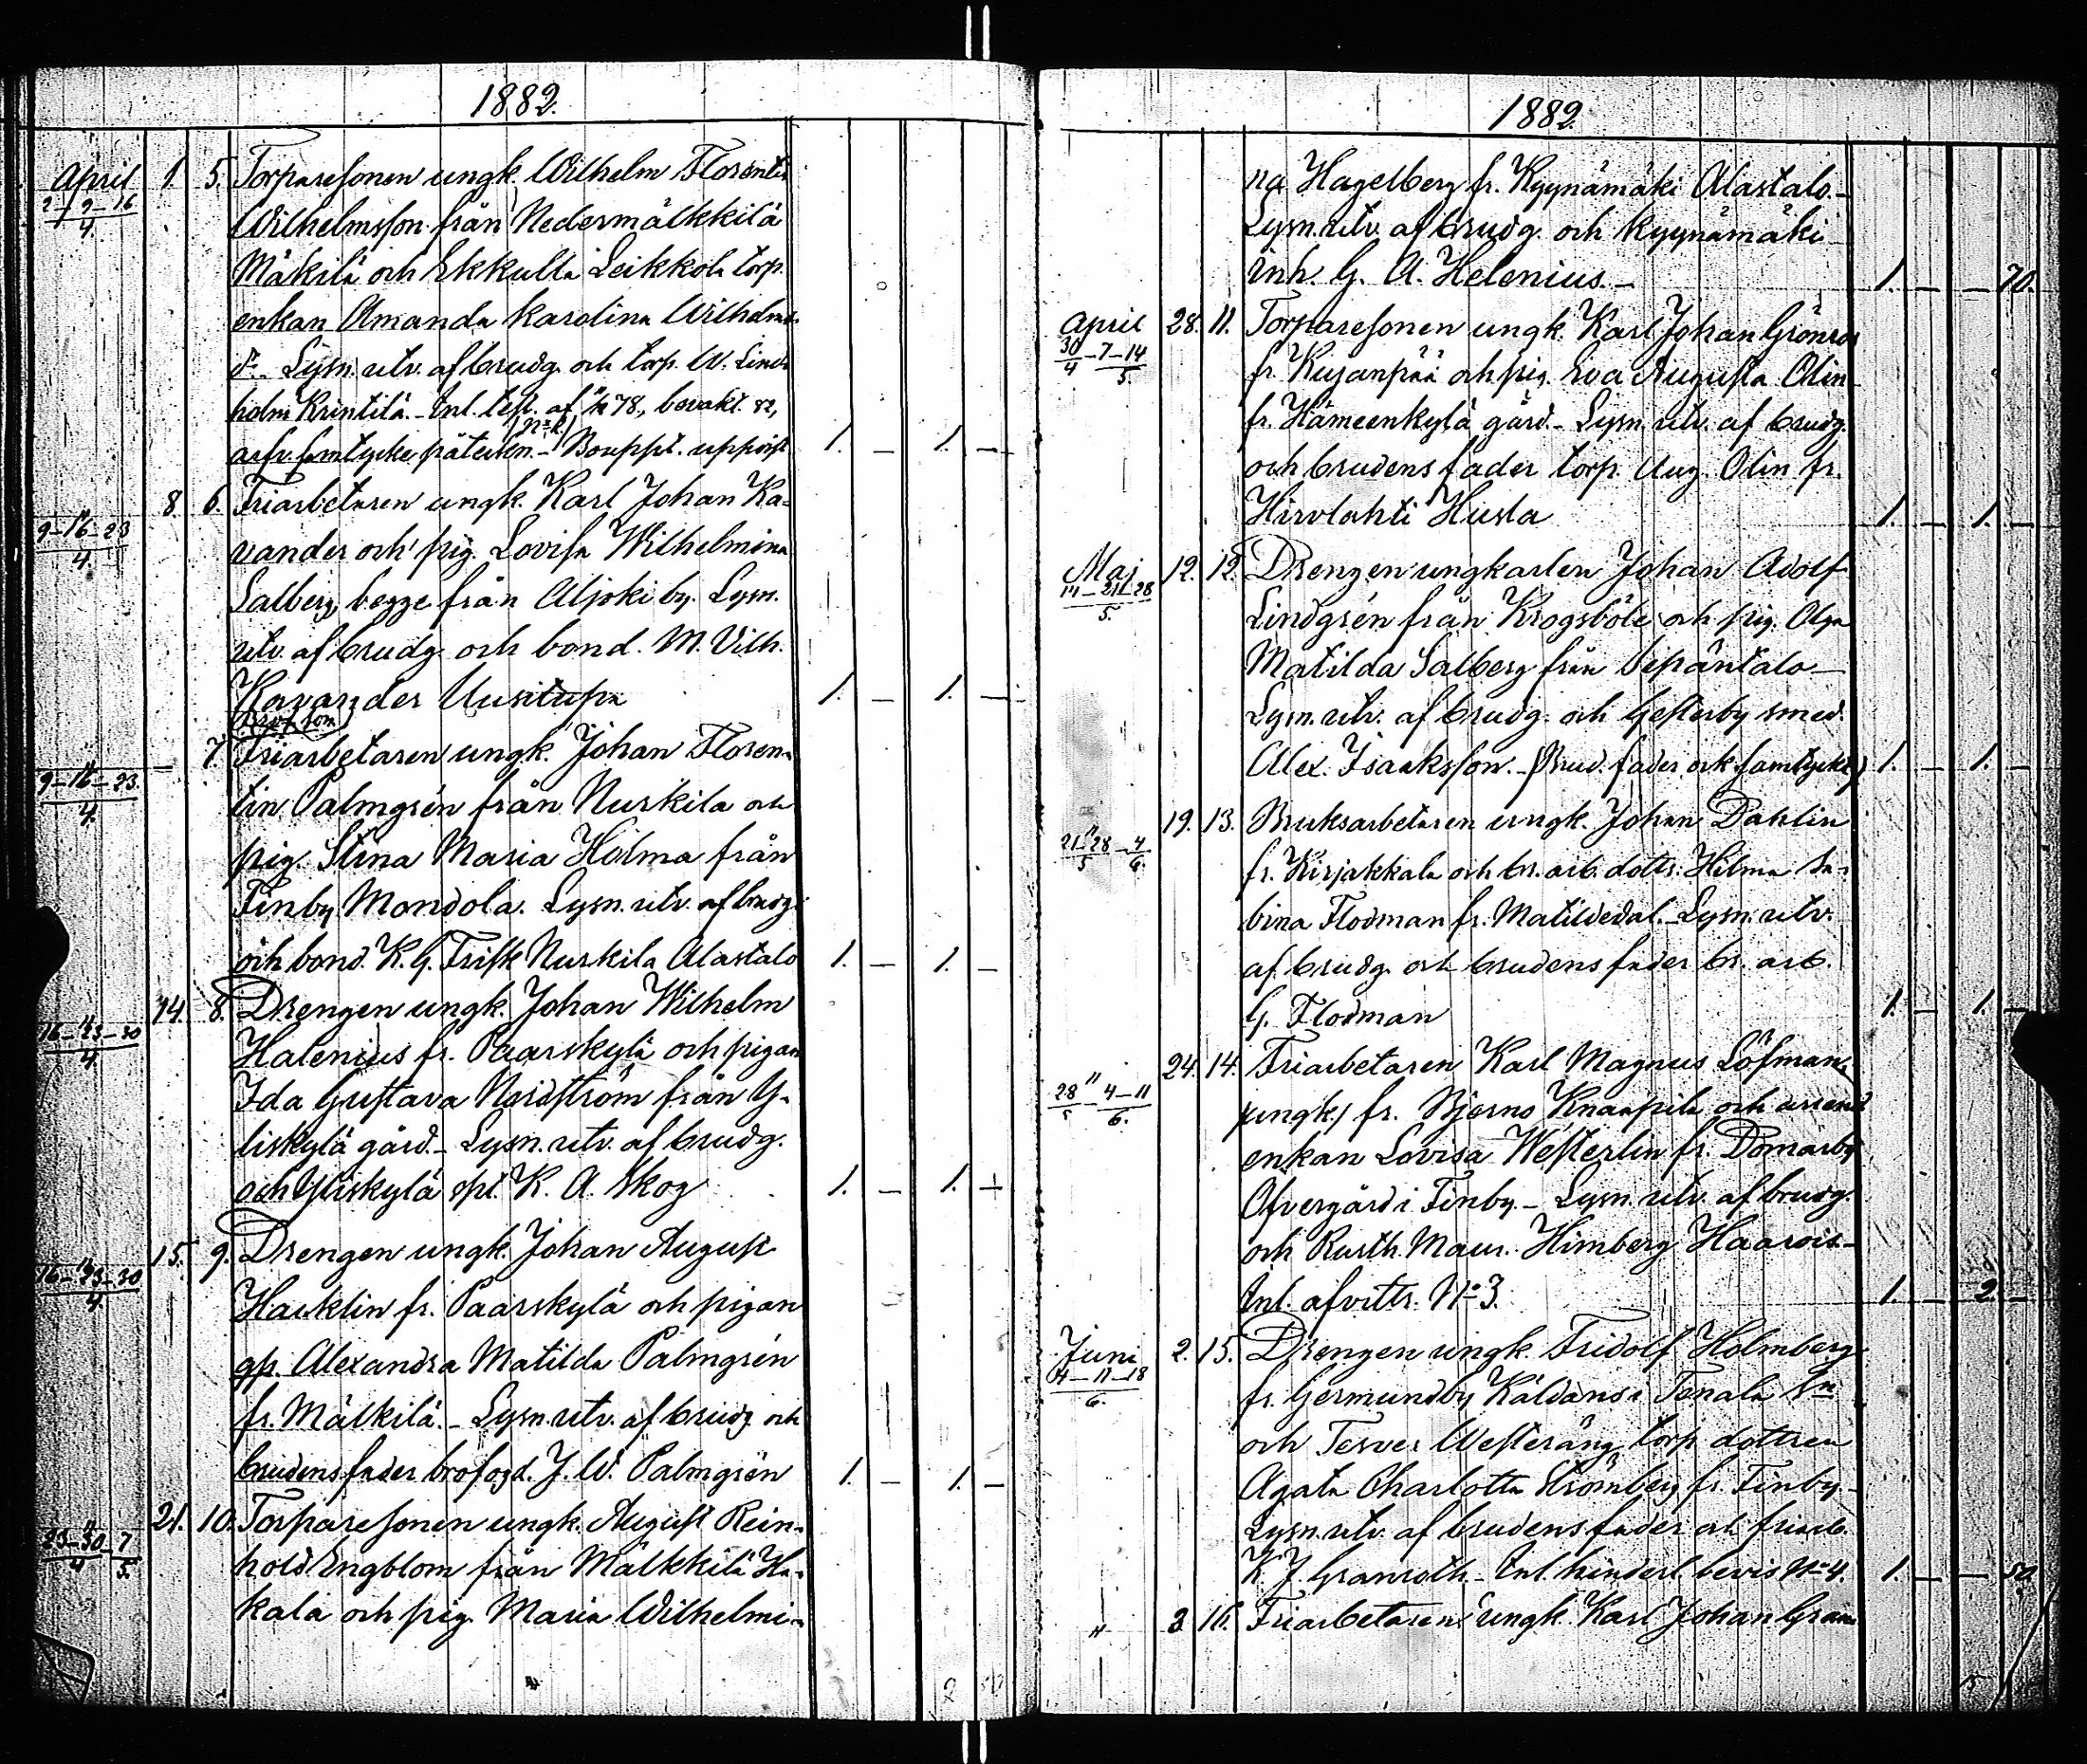 1882.
April 1. 5. Torparesonen ungk. Wilhelm Florentin
2-9-16/4. Wilhelmsson från Nedermälkkilä
Mäkilä och Ekkulla Leikkola torp.
enkan Amanda Karolina Wilhelms-
dr. Lysn. utv. af brudg. och torp. W. Lind-
holm Krintilä. - Inl. test. af 78, bevakt. 82,
arfv. samtycke påteckn. - Bouppt. uppvist 1. — 1. —
8. 6. Friarbetaren ungk. Karl Johan Ka-
9-16-23/4. vander och pig. Lovisa Wilhelmina
Salberg, begge från Aljoki by. Lysn.
utv. af brudg. och bond. M. Vilh.
Kavander Uusitupa 1. — 1. —
7. Friarbetaren ungk. Johan Floren-
9-16-23./4. tin Palmgrén från Nurkila och
pig. Stina Maria Holma från
Finby Mondola. Lysn. utv. af brudg.
och bond. K. G. Frisk Nurkila Alastalo 1. — 1. —
14. 8. Drengen ungk. Johan Wilhelm
16-23-30/4. Halenius fr. Paarskylä och pigan
Ida Gustava Nordström från Y-
liskylä gård. - Lysn. utv. af brudg.
och Yliskylä spl. K. A. Skog 1. — 1. —
15. 9. Drengen ungk. Johan August
16-23-30/4. Hacklin fr. Paarskylä och pigan
gp. Alexandra Matilda Palmgrén
fr. Mälkilä. - Lysn. utv. af brudg. och
brudens fader brofogd. J. W. Palmgrén 1. — 1. —
21. 10. Torparesonen ungk. August Rein-
23-30/4-7/5. hold Engblom från Mälkkilä Ha-
kala och pig. Maria Wilhelmi-
1882.
na Hagelberg fr. Kyynämäki Alastalo. -
Lysn. utv. af brudg. och Kyynämäki
inh. G. A. Helenius. - 1. — — 70.
April 28. 11. Torparesonen ungk. Karl Johan Grönroos
30/4-7-14/5. fr. Kujanpää och pig. Eva Augusta Olin
fr. Hämeenkylä gård. - Lysn. utv. af brudg.
och brudens fader torp. Aug. Olin fr.
Hirvlahti Husla 1. — 1. —
Maj 12. 12. Drengen ungkarlen Johan Adolf
14-21-28/5. Lindgrén från Krogsböle och pig. Olga
Matilda Salberg från Sepäntalo -
Lysn. utv. af brudg. och Gesterby smed.
Alex. Isaksson. - (Brud. fader ock samtyckt) 1. — 1. —
19. 13. Bruksarbetaren ungk. Johan Dahlin
21-28/5-4/6. fr. Kirjakkala och br. arb. dottr. Hilma Sa-
bina Flodman fr. Matildedal. - Lysn. utv.
af brudg. och brudens fader br. arb.
G. Flodman 1. — 1. —
24. 14. Friarbetaren Karl Magnus Löfman,
28/5-4-11/6. (ungk.) fr. Bjerno Knaapila och arrend.
enkan Lovisa Westerlin fr. Domarby
Ofvergård i Finby. - Lysn. utv. af brudg.
och Rusth. Maur. Himberg Haarois -
Inl. afvittr. No 3. 1. — 2. —
Juni 2. 15. Drengen ungk. Fridolf Holmberg
4-11-18/6. fr. Germundby Käldans i Tenala Sn
och Terver Westeräng torp. dottren
Agata Charlotta Strömberg fr. Finby -
Lysn. utv. af brudens fader och friarb.
K. J. Granroth. - Inl. hinderl. bevis No 4. 1. — — 50.
" 3. 16. Friarbetaren ungk. Karl Johan Gran-